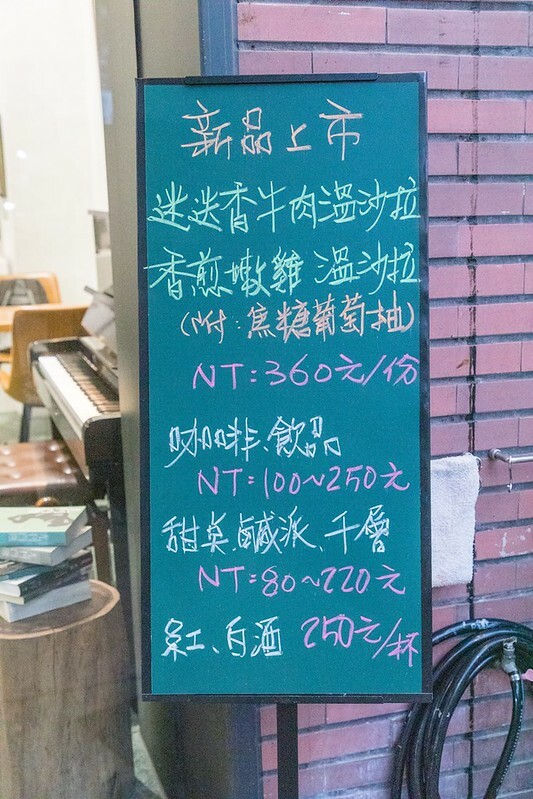 新品上市
迷迭香牛肉溫沙拉
香煎嫩雞溫沙拉
(附:焦糖葡萄柚)
NT:360元/份
咖啡、飲品
NT:100~250元
甜菜、鹹派、千層
NT:80~220元
紅、白酒 250元/杯